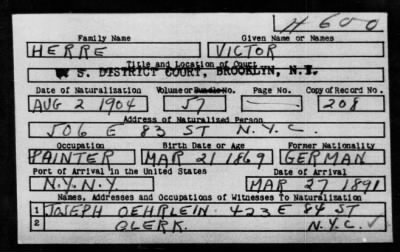 H 600
Family Name Given Name or Names
HERRE VICTOR
Title and Location of Court
U S. DISTRICT COURT, BROOKLYN, N.Y.
Date of Naturalization Volume or Bundle No. Page No. Copy of Record No.
AUG 2 1904 57 — 208
Address of Naturalized Person
506 E 83 ST N.Y.C.
Occupation Birth Date or Age Former Nationality
PAINTER MAR 21 1869 GERMAN
Port of Arrival in the United States Date of Arrival
N.Y. N.Y MAR 27 1891
Names, Addresses and Occupations of Witnesses to Naturalization
1 JOSEPH OEHRLEIN 423 E 84 ST
2 CLERK. N.Y.C.